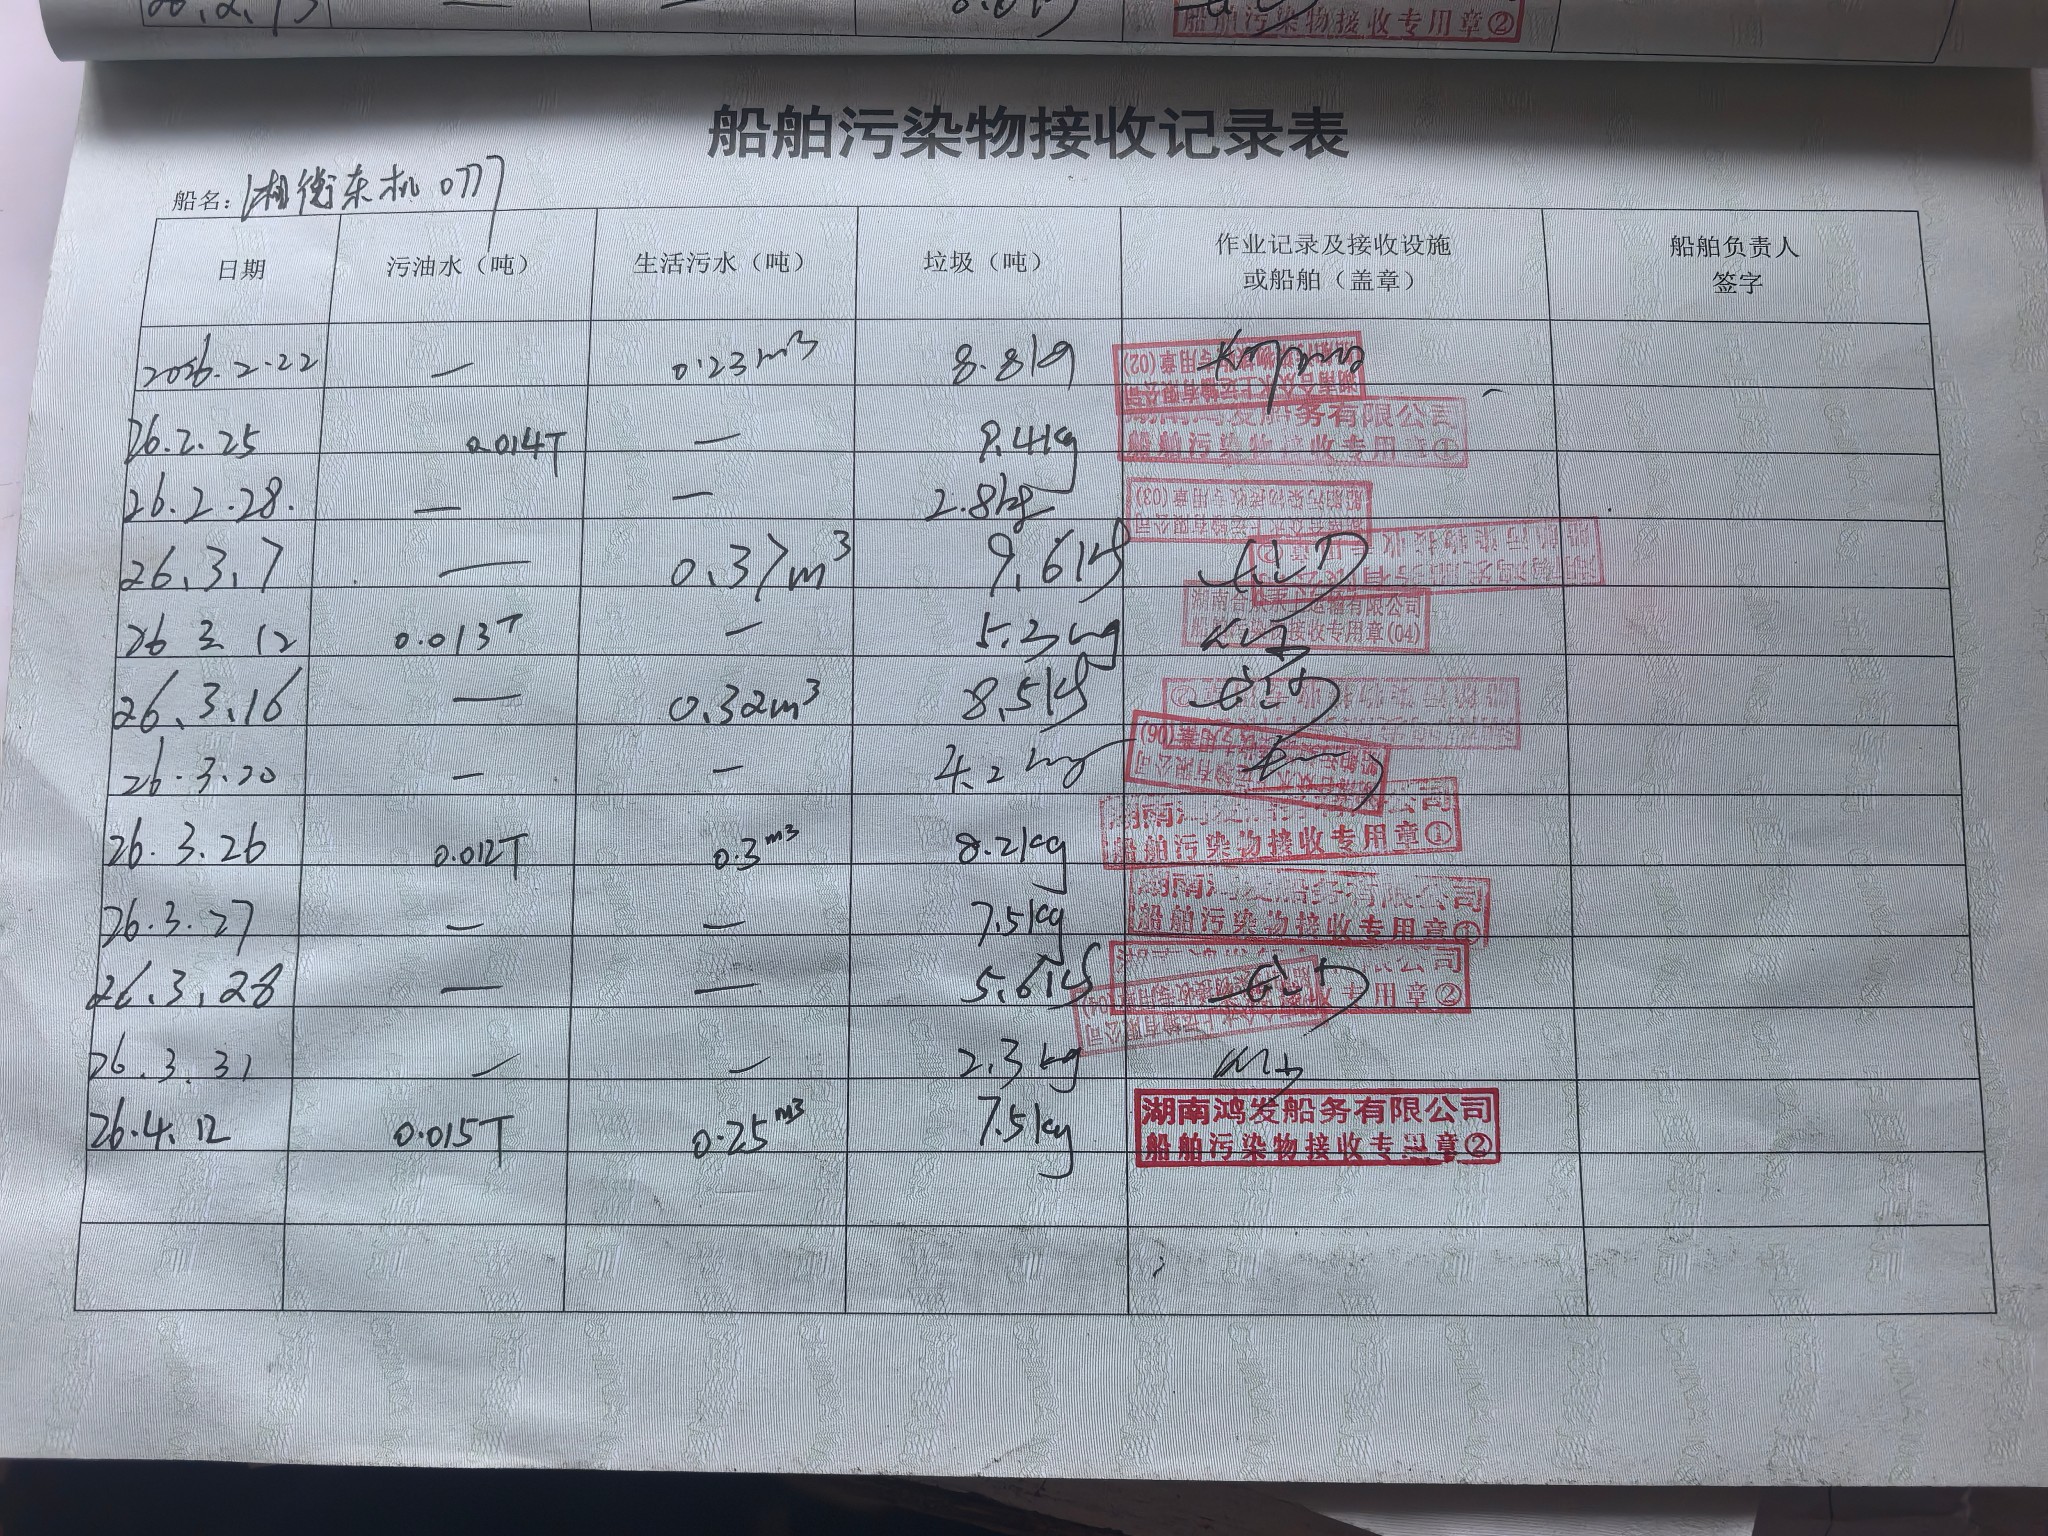 船舶污染物接收专用章②
船舶污染物接收记录表
船名：湘衡东机0777
日期 污油水（吨） 生活污水（吨） 垃圾（吨） 作业记录及接收设施 船舶负责人
或船舶（盖章） 签字
2026.2.22 — 0.23m³ 8.8kg
26.2.25 0.014T — 9.4kg
发船务有限公司
船舶污染物接收专用章①
26.2.28. — — 2.8kg
船舶污染物接收专用章(03)
26.3.7 — 0.37m³ 9.6kg
26.3.12 0.013T — 5.3kg
湖南合众水上运输有限公司
船舶污染物接收专用章(04)
26.3.16 — 0.32m³ 8.5kg
26.3.20 — — 4.2kg
26.3.26 0.012T 0.3m³ 8.2kg
船舶污染物接收专用章①
26.3.27 — — 7.5kg
湖南鸿发船务有限公司
船舶污染物接收专用章①
26.3.28 — — 5.6kg
公司
专用章②
26.3.31 — — 2.3kg
26.4.12 0.015T 0.25m³ 7.5kg
湖南鸿发船务有限公司
船舶污染物接收专用章②